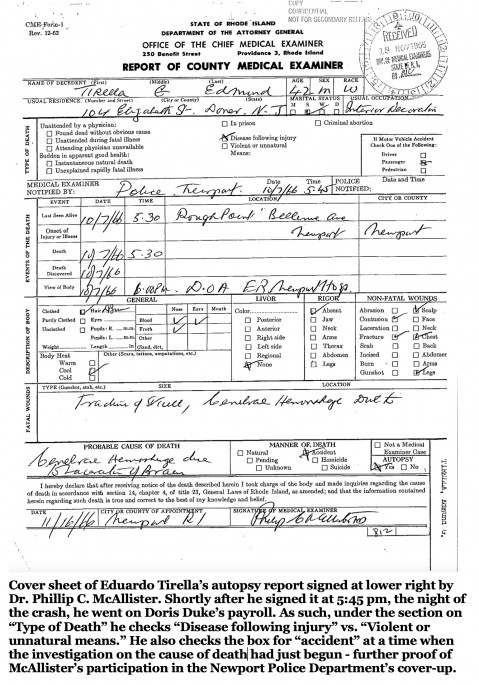 COPY
CONFIDENTIAL
NOT FOR SECONDARY RELEASE
CME-Form-1
Rev. 12-62
STATE OF RHODE ISLAND
DEPARTMENT OF THE ATTORNEY GENERAL
OFFICE OF THE CHIEF MEDICAL EXAMINER
250 Benefit Street Providence 3, Rhode Island
REPORT OF COUNTY MEDICAL EXAMINER
RECEIVED
18 NOV 1966
NAME OF DECEDENT (First) (Middle) (Last) AGE SEX RACE
Tirella C Edmund 42 m W
USUAL RESIDENCE (Number and Street) (City or County) (State) MARITAL STATUS USUAL OCCUPATION
104 Elizabeth St. Dover, N. J M S W D Interior Decorator
TYPE OF DEATH
Unattended by a physician:
Found dead without obvious cause
Unattended during fatal illness
Attending physician unavailable
Sudden in apparent good health:
Instantaneous natural death
Unexplained rapidly fatal illness
In prison Criminal abortion
Disease following injury
Violent or unnatural
Means:
If Motor Vehicle Accident
Check One of the Following:
Driver
Passenger
Pedestrian
MEDICAL EXAMINER
NOTIFIED BY: Police, Newport
Date Time
10/7/66 5:45
POLICE
NOTIFIED:
Date and Time
EVENTS OF THE DEATH
EVENT DATE TIME LOCATION CITY OR COUNTY
Last Seen Alive 10/7/66 5.30 Rough Point' Bellevue Ave
Onset of
Injury or Illness Newport Newport
Death 10/7/66 5.30
Death
Discovered 10/7/66
View of Body 10/7/66 6:00 Pm. D.O.A E.R, Newport Hosp.
DESCRIPTION OF BODY
GENERAL LIVOR RIGOR NON-FATAL WOUNDS
Clothed Hair Nose Ears Mouth
Partly Clothed Eyes Blood
Unclothed Pupils: R. mm Froth
Pupils: L. mm Other
Weight Length in (Sand, dirt,
Body Heat Other (Scars, tattoos, amputations, etc.)
Warm
Cool
Cold
Color
Posterior
Anterior
Right side
Left side
Regional
None
Absent
Jaw
Neck
Arms
Thorax
Abdomen
Legs
Abrasion Scalp
Contusion Face
Laceration Neck
Fracture Chest
Stab Back
Incised Abdomen
Burn Arms
Gunshot Legs
FATAL WOUNDS
TYPE (Gunshot, stab, etc.) SIZE LOCATION
Fracture of Skull, Cerebral Hemorrhage Due to
PROBABLE CAUSE OF DEATH
Cerebral Hemorrhage due
to Laceration of Brain
MANNER OF DEATH
Natural Accident
Pending Homicide
Unknown Suicide
Not a Medical
Examiner Case
AUTOPSY
Yes No
I hereby declare that after receiving notice of the death described herein I took charge of the body and made inquiries regarding the cause
of death in accordance with section 14, chapter 4, of title 23, General Laws of Rhode Island, as amended; and that the information contained
herein regarding such death is true and correct to the best of my knowledge and belief.
DATE CITY OR COUNTY OF APPOINTMENT SIGNATURE OF MEDICAL EXAMINER
11/16/66 Newport R I Philip C McAllister MD
812
Cover sheet of Eduardo Tirella's autopsy report signed at lower right by
Dr. Phillip C. McAllister. Shortly after he signed it at 5:45 pm, the night of
the crash, he went on Doris Duke's payroll. As such, under the section on
"Type of Death" he checks "Disease following injury" vs. "Violent or
unnatural means." He also checks the box for "accident" at a time when
the investigation on the cause of death had just begun - further proof of
McAllister's participation in the Newport Police Department's cover-up.